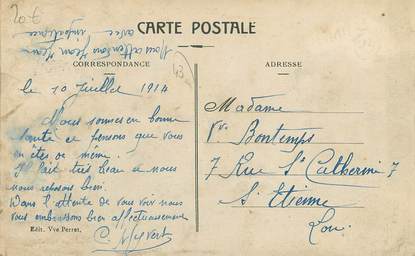 20-F
Nous attendons Jean Jean
avec impatience
CARTE POSTALE
CORRESPONDANCE
ADRESSE
le 10 Juillet 1914
Nous sommes en bonne
santé et pensons que vous
en êtes de même.
Il fait très beau et nous
nous reposons bien.
Dans l'attente de vous voir nous
vous embrassons bien affectueusement
Edit. Vve Perret.
Madame
Vve Bontemps
7 Rue St Catherine 7
St Etienne
Loire